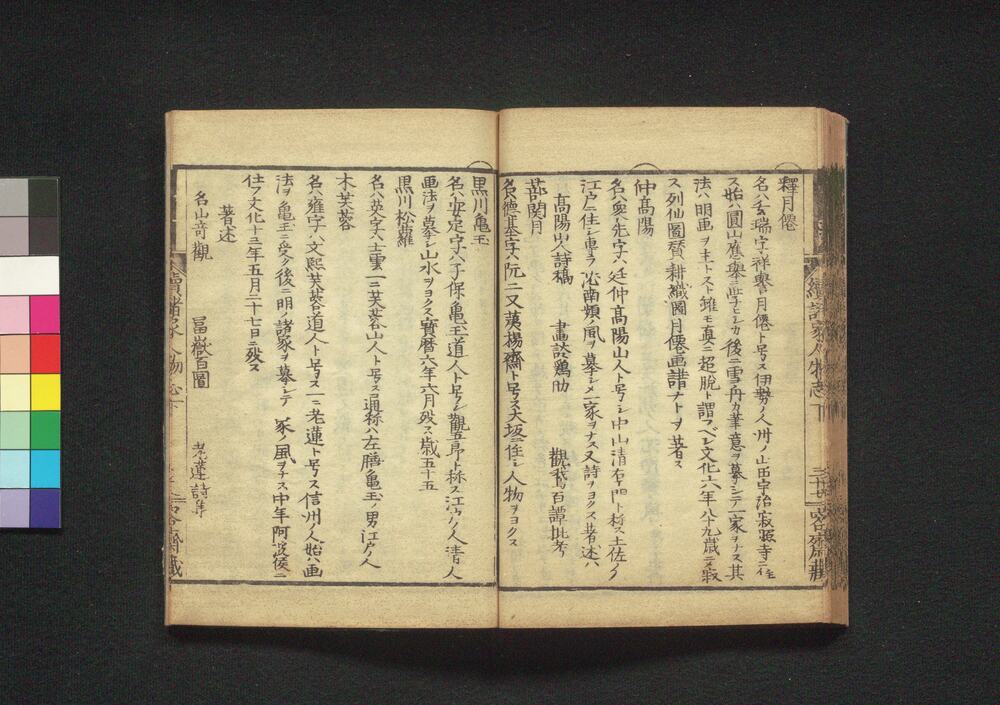 續諸家人物志 下
釋月僊
名ハ玄瑞字ハ祥譽月僊ト号ス伊勢ノ人州ノ山田宇治寂照寺ニ住
ス始ハ圓山應舉ニ学ヒシカ後ニ雪舟カ筆意ヲ摹シテ一家ヲナス其
法ハ明画ヲ主トスト雖モ真ニ超脱ト謂フベシ文化六年八十九歳ニメ寂
ス列仙圖賛耕織圖月僊画譜ナトノ著ス
仲高陽
名ハ字ハ廷仲高陽山人ト号シ中山清右ヱ門ト称ス土佐ノ人
江戸ニ住シ専ラ風ヲ摹シメ一家ヲナス又詩ヲヨクス著述ハ
高陽山人詩稿 畫談鶏肋 觀鵞百譚批考
蔀関月
名ハ徳基字ハ原二又荑揚齋ト号ス大坂ニ住シ人物ヲヨクス
黒川亀玉
名ハ安定字ハ子保亀玉道人ト号シ觀五郎ト称ス江戸ノ人清人
画法ヲ摹シ山水ヲヨクス寳暦六年六月殁ス歳五十五
黒川松蘿
名ハ英字ハ士雲一ニ芙蓉山人ト号ス通称ハ左膳亀玉ノ男江戸ノ人
木芙蓉
名ハ雍字ハ文熙芙蓉道人ト号ス一ニ老蓮ト号ス信州ノ人始ハ画
法ヲ亀玉ニ受ク後ニ明ノ諸家ヲ摹シテ一家ノ風ヲナス中年阿波侯ニ
仕フ文化十三年五月二十七日ニ殁ス
著述
名山竒觀 冨嶽百圖 老蓮詩集
續諸家人物志 下